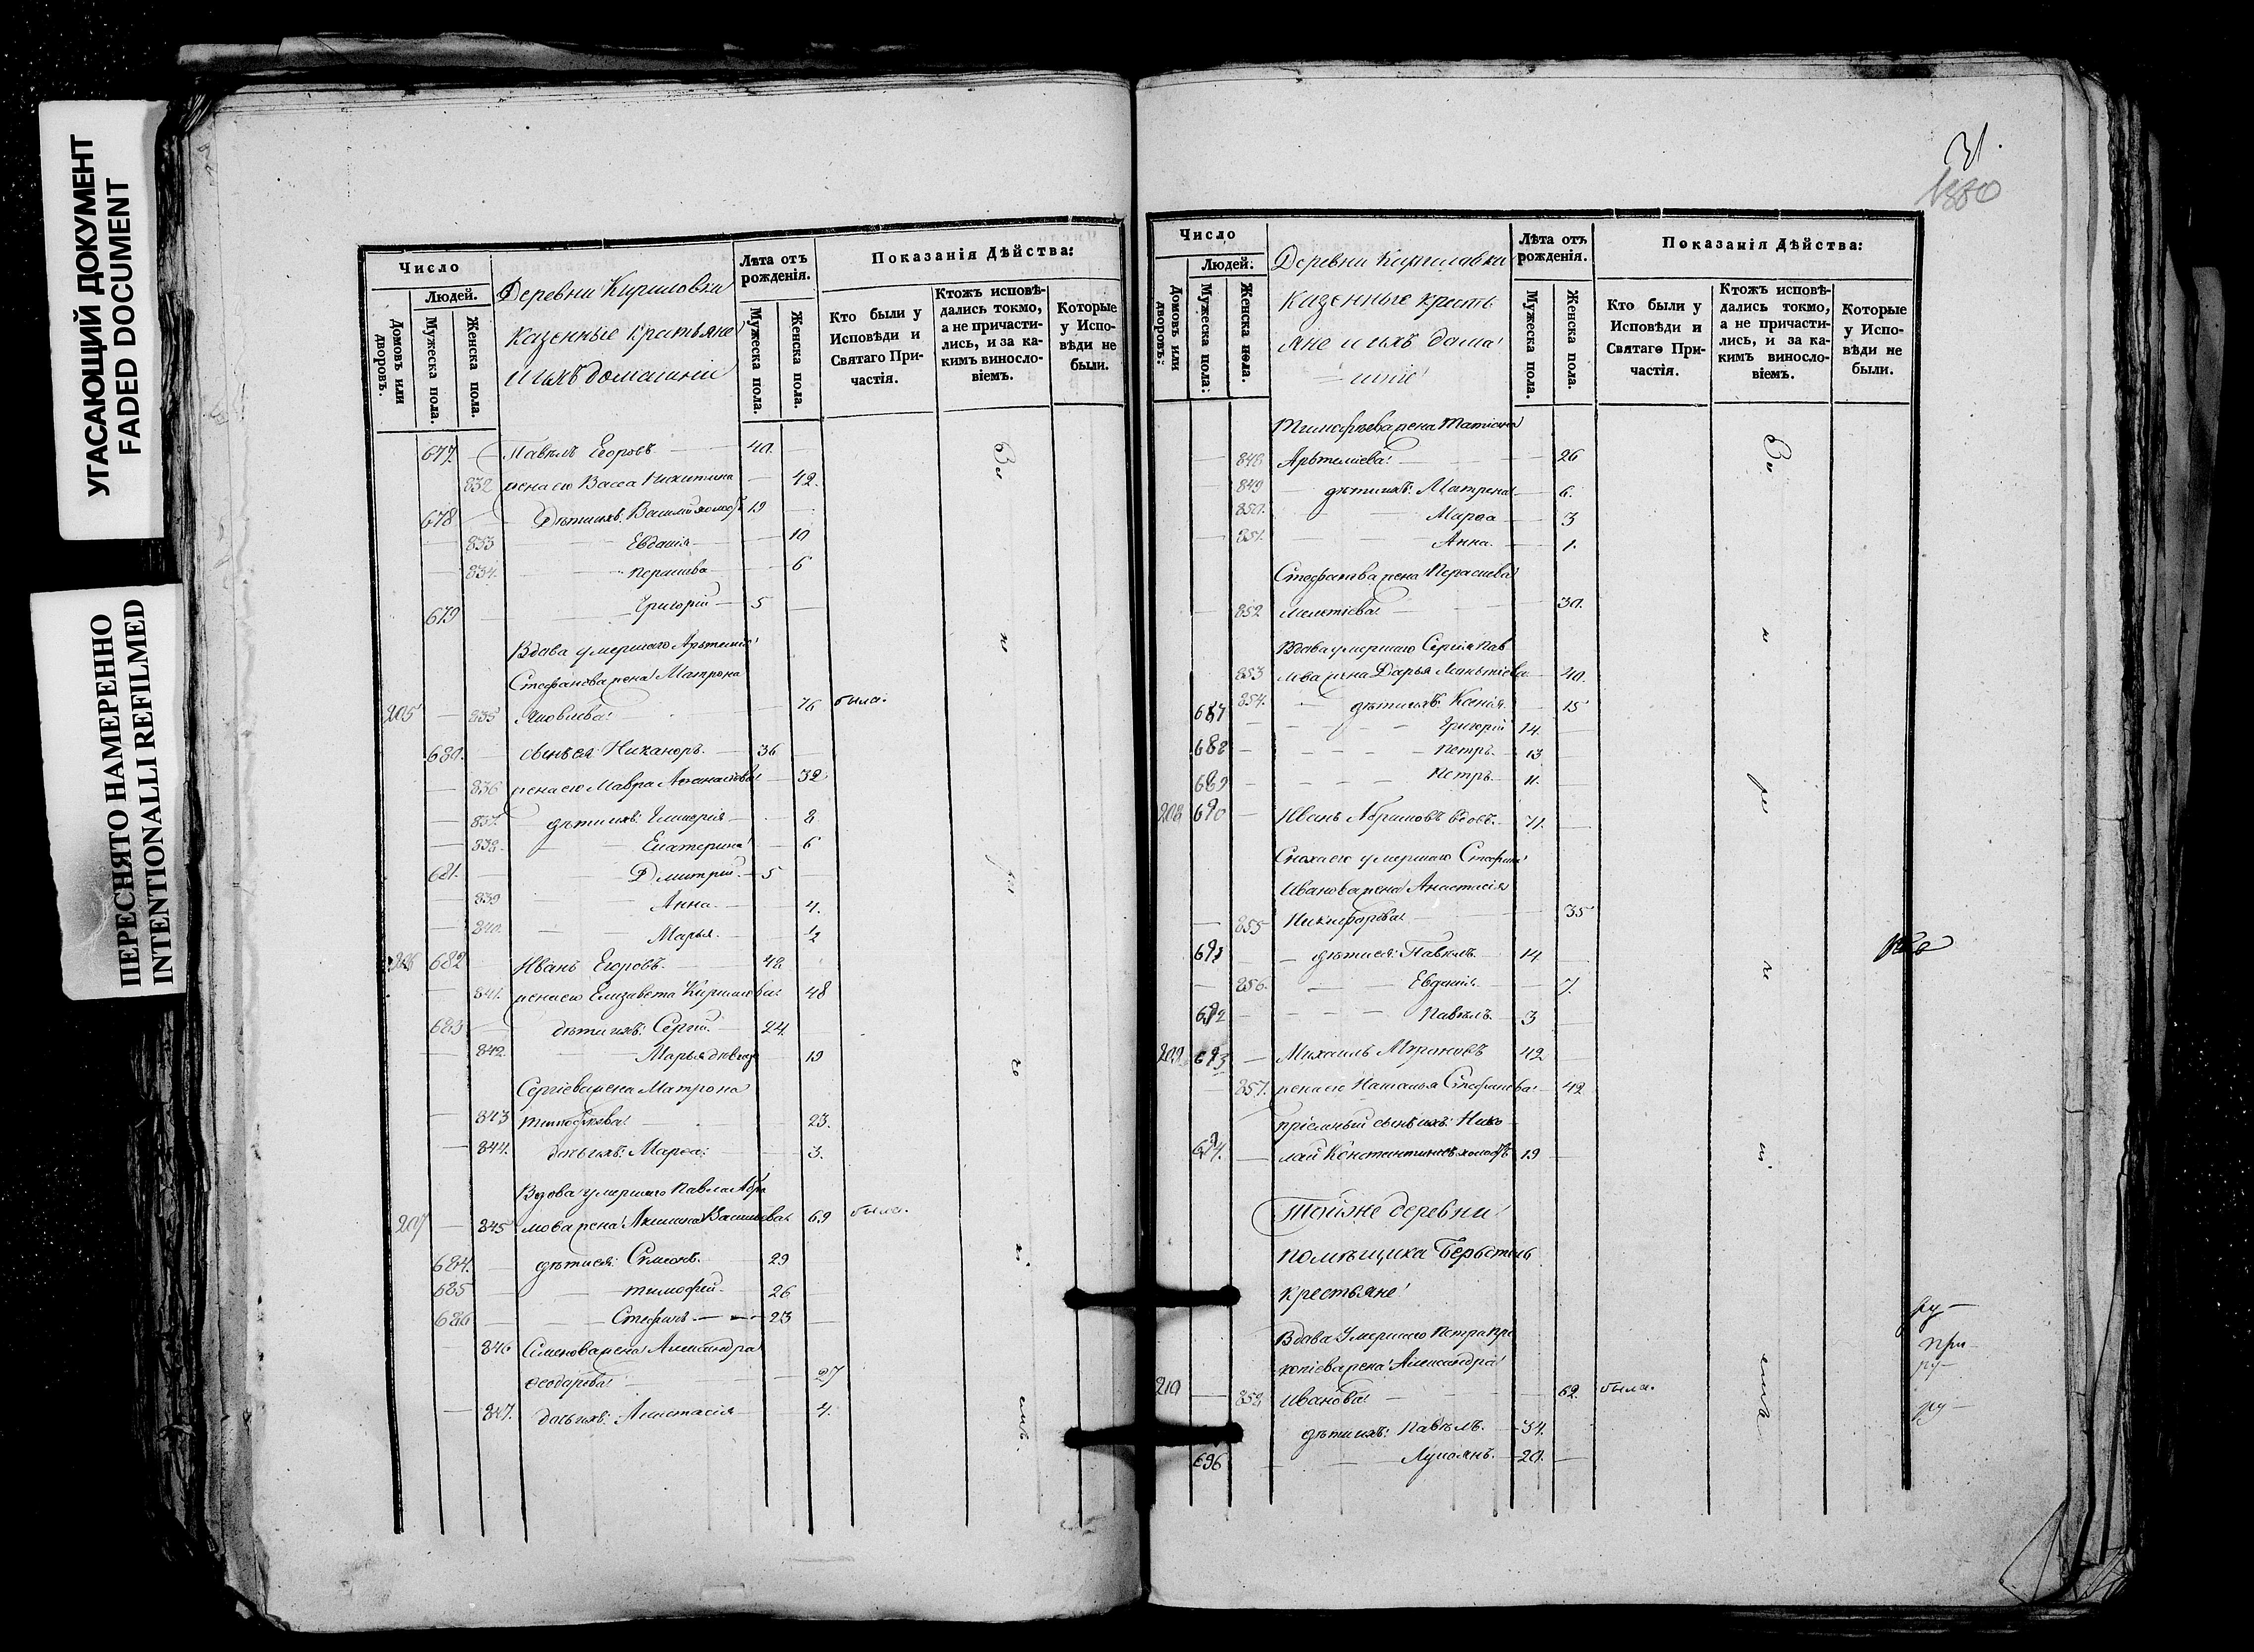 УГАСАЮЩИЙ ДОКУМЕНТ
FADED DOCUMENT
ПЕРЕСНЯТО НАМЕРЕННО
INTENTIONALLI REFILMED
Число
Людей.
Домовъ или дворовъ.
Мужеска пола.
Женска пола.
Деревни Кириловки
казенные крестьяне
и ихъ домашніи
Лѣта отъ рожденія.
Мужеска пола.
Женска пола.
Показанія Дѣйства:
Кто были у Исповѣди и Святаго Причастія.
Ктожъ исповѣдались токмо, а не причастились, и за какимъ винословіемъ.
Которые у Исповѣди не были.
677. Павелъ Егоровъ 40.
832 жена его Васса Никитина 42.
678 Дѣти ихъ: Василій холостъ 19
833 Евдокія 10
834. Параскева 6
679 Григорій 5
Вдова умершаго Артемія
Стефанова жена Матрона
205 835 Яковлева 76 была.
680. сынъ ея Никаноръ. 36
836 жена его Мавра Афанасьева 32
837. дѣти ихъ: Гликерія 8
838. Екатерина 6
681. Дмитрій 5
839 Анна 4.
840. Марья. ½
206 682 Иванъ Егоровъ. 48
841. жена его Елизавета Кирилова 48
683 дѣти ихъ: Сергій. 24.
842. Марья дѣвица 19
Сергіева жена Матрона
843 Тимофеева 23.
844. дочь ихъ: Марѳа: 3.
Вдова умершаго Павла Абра
207 845 мова жена Акилина Васильева 69 была.
684. дѣти ея: Симеонъ. 29
685 Тимофей 26
686 Стефанъ 23
846 Семенова жена Александра
Ѳеодорова 27
847. дочь ихъ: Анастасія 4.
31.
1880
Число
Людей:
Домовъ или дворовъ:
Мужеска пола:
Женска пола.
Деревни Кириловки
казенные кресть
яне и ихъ дома
шніе
Лѣта отъ рожденія.
Мужеска пола.
Женска пола.
Показанія Дѣйства:
Кто были у Исповѣди и Святаго Причастія.
Ктожъ исповѣдались токмо, а не причастились, и за какимъ винословіемъ.
Которые у Исповѣди не были.
Тимофеева жена Татіана
848 Артеміева 26
849 дѣти ихъ: Матрена 6.
850. Марѳа 3
851. Анна. 1.
Стефанова жена Параскева
852 Мелетіева 30.
Вдова умершаго Сергія Пав
853 лова жена Дарья 40.
854. дѣти ихъ: Ксенія. 15
687 Григорій 14.
688 Петръ. 13
689 Петръ 11.
208 690 Иванъ Абрамовъ вдовъ. 71.
Сноха его умершаго Стефана
Иванова жена Анастасія
855 Никифорова 35
691 дѣти ея: Павелъ 14
856. Евдокія 7.
692 Павелъ 3
209 693 Михаилъ Мироновъ 42
857. жена его Наталья Стефанова 42
Пріемный сынъ ихъ: Нико
694. лай Константиновъ холостъ 19
Той же деревни
помѣщика
крестьяне
Вдова умершаго Петра Про
копіева жена Александра
210 858 Иванова 62. была.
дѣти ихъ: Павелъ. 34.
696 Лукіянъ. 20.